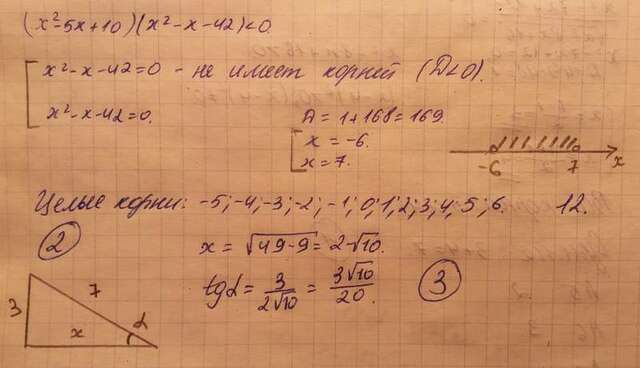 (x²-5x+10)(x²-x-42)<0.
x²-x-42=0 - не имеет корней (D<0).
x²-x-42=0. D = 1+168=169.
x=-6.
x=7.
-6 7 x
Целые корни: -5; -4; -3; -2; -1; 0; 1; 2; 3; 4; 5; 6. 12.
2 x = √49-9 = 2√10.
tgα = 3/2√10 = 3√10/20. 3
3 7 x α